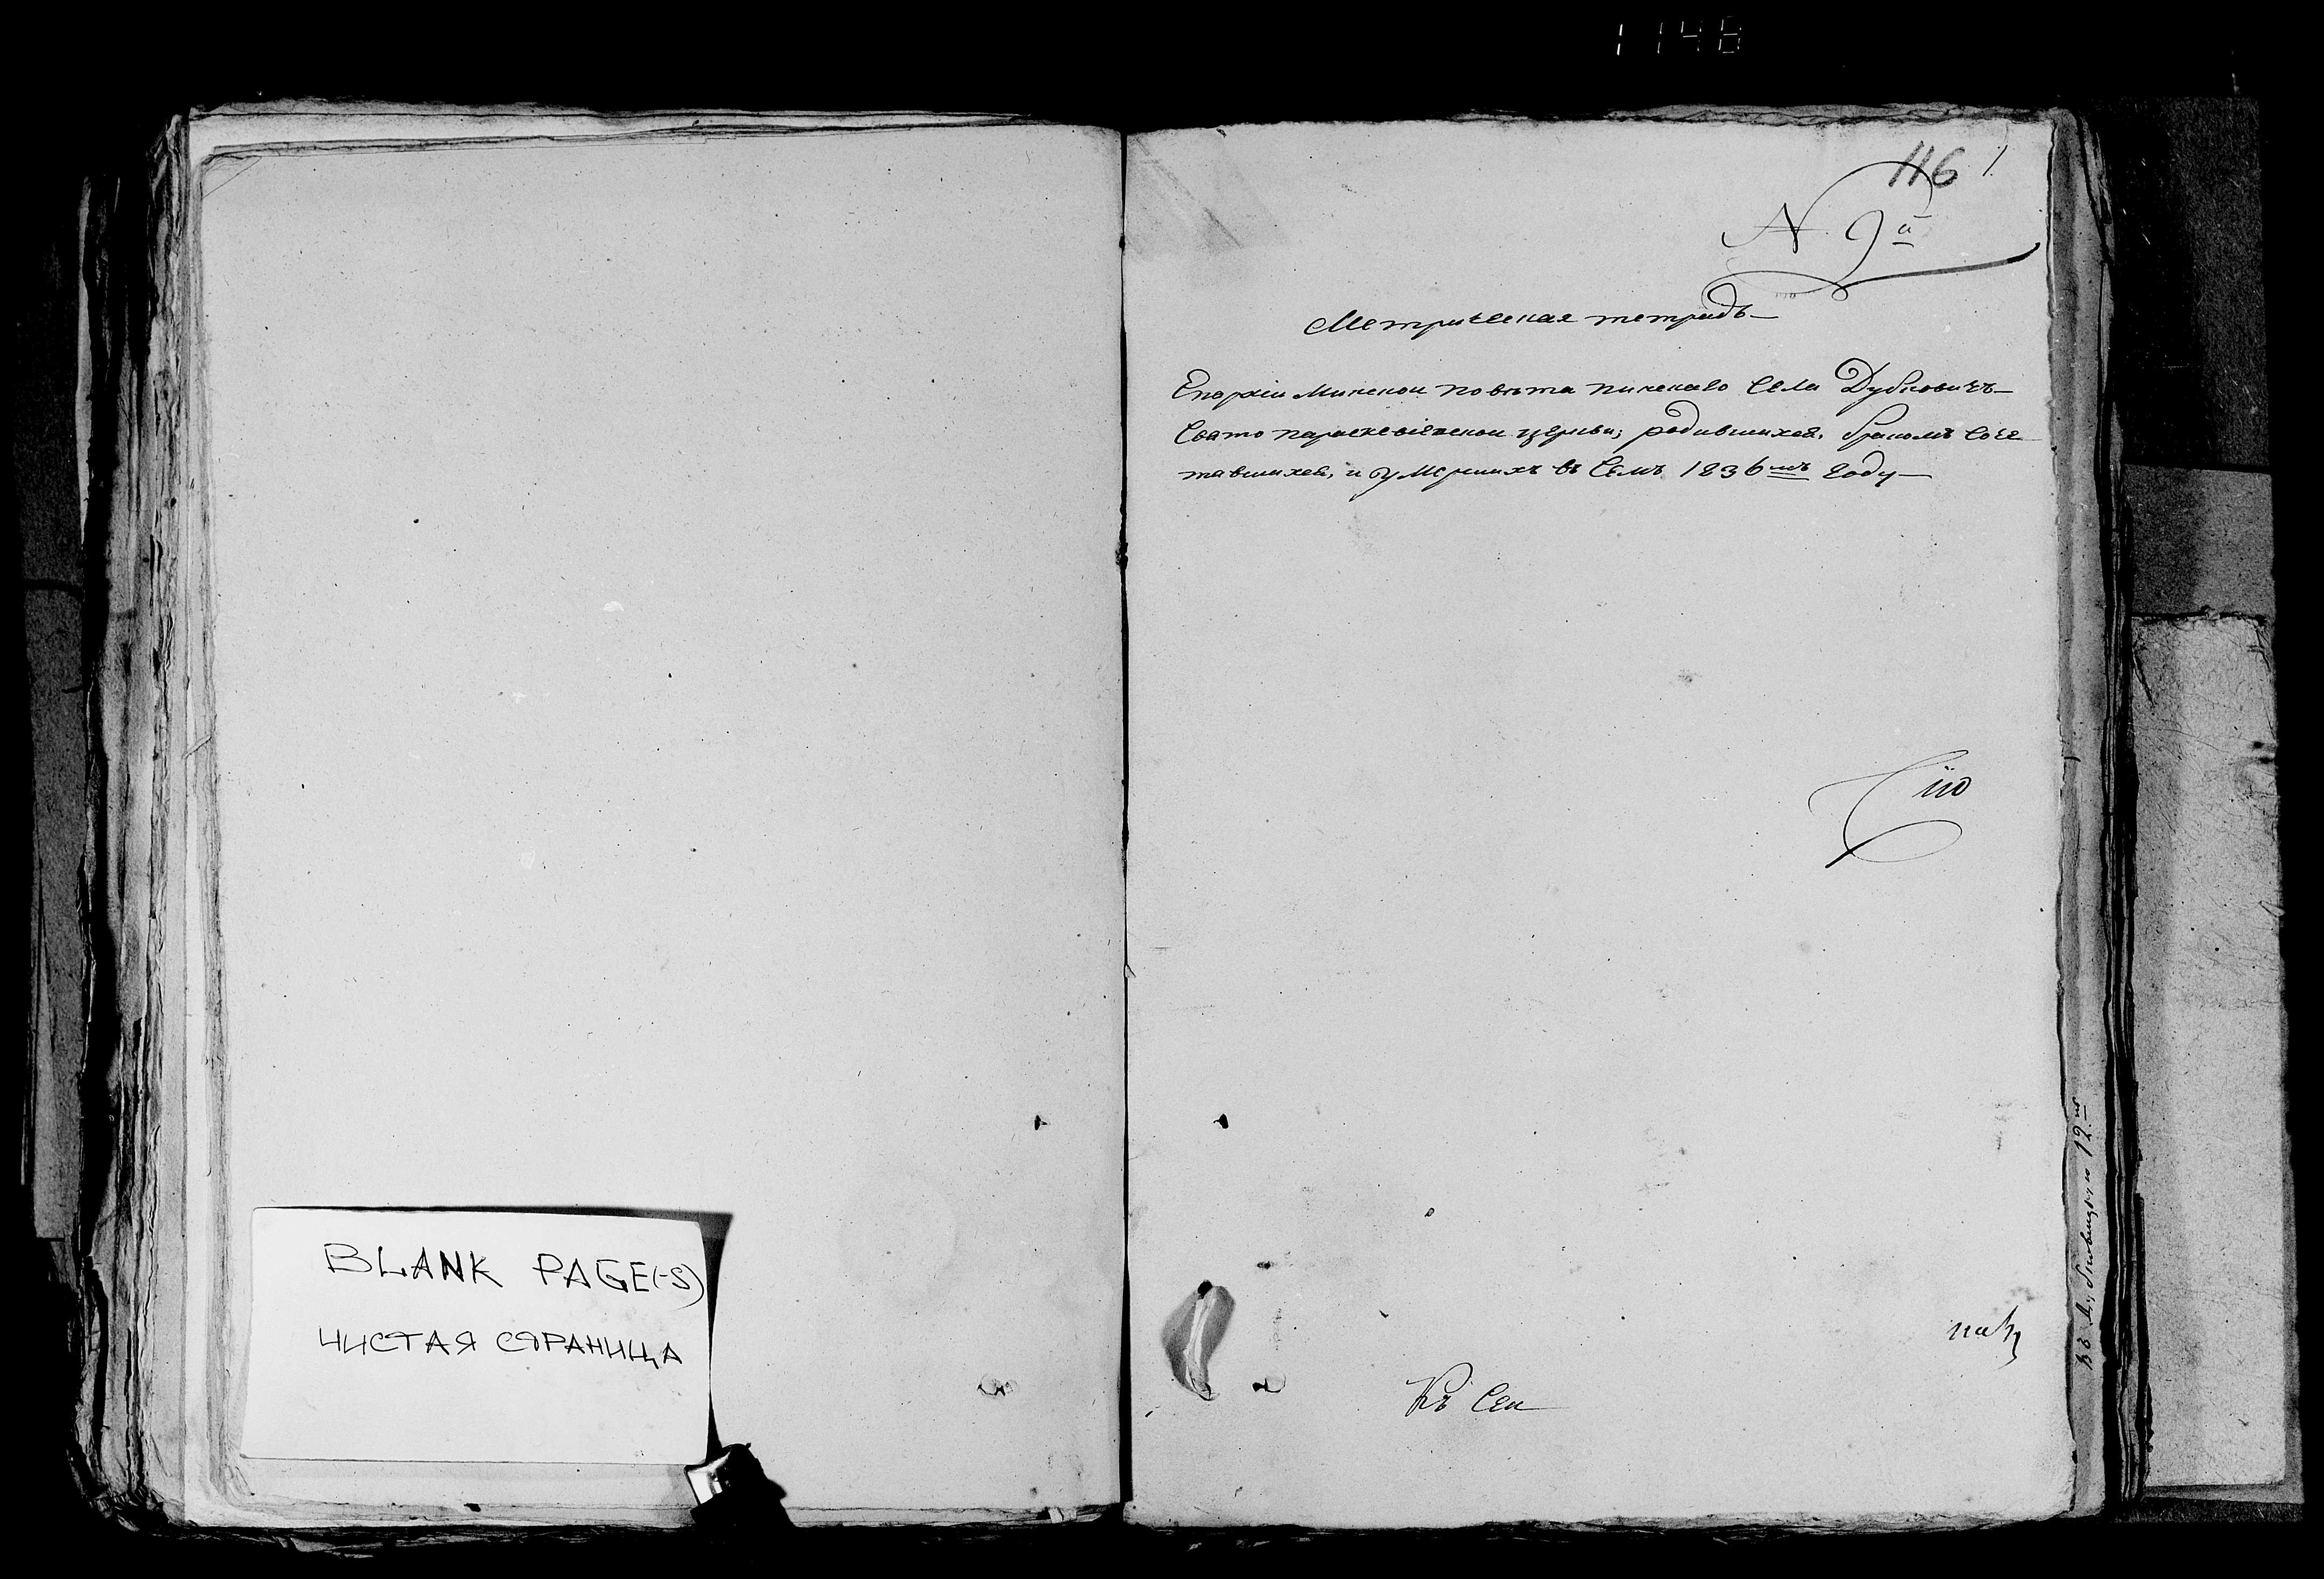 1148
BLANK PAGE(-S)
ЧИСТАЯ СТРАНИЦА
116 1.
N. 9й
Метрическая тетрадь—
Епархіи Минской повѣта пинскаго Села Дубновичъ—
Свято параскевіевской церкви; родившихся, бракомъ Соче
тавшихся, и умершихъ въ Семъ 1836мъ году—
Сію
Къ Сей